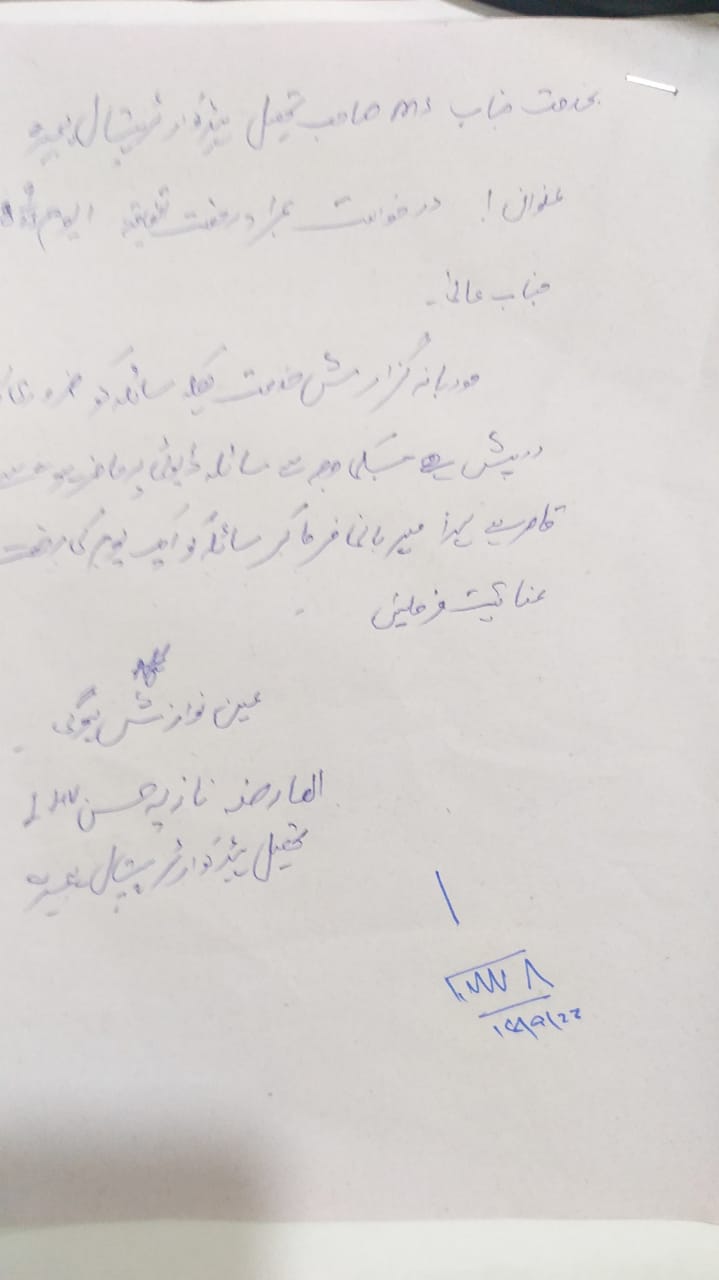 بخدمت جناب MS صاحب تحصیل ہیڈکوارٹر ہسپتال بھیرہ
عنوان! درخواست بمراد رخصت اتفاقیہ ایوم
جناب عالیٰ۔
مودبانہ گزارش خدمت ہیکہ سائلہ کو ضروری
درپیش ہے جسکی وجہ سے سائلہ ڈیوٹی پر حاضر ہونے سے
قاصر ہے لہذا مہربانی فرما کر سائلہ کو ایک یوم کی رخصت
عنائیت فرمائیں
عین نوازش ہوگی
العارضہ نازیہ حسن
تحصیل ہیڈکوارٹر ہسپتال بھیرہ